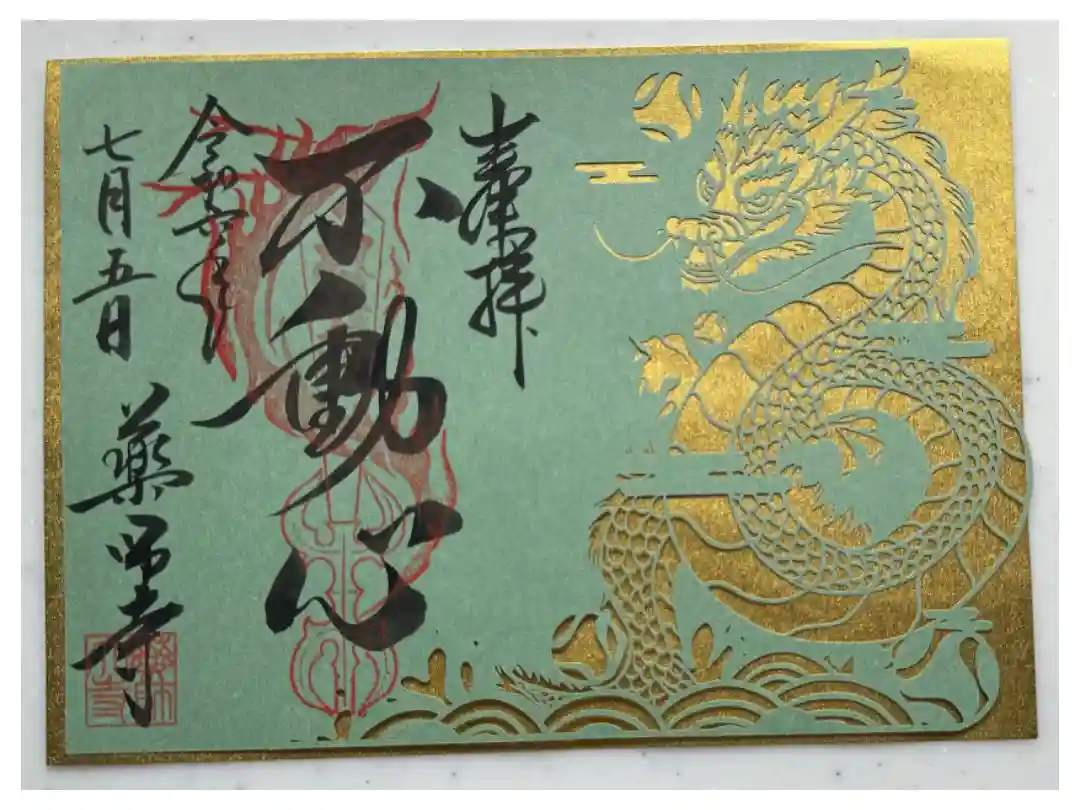 奉拝
不動心
令和六年
七月五日
薬師寺